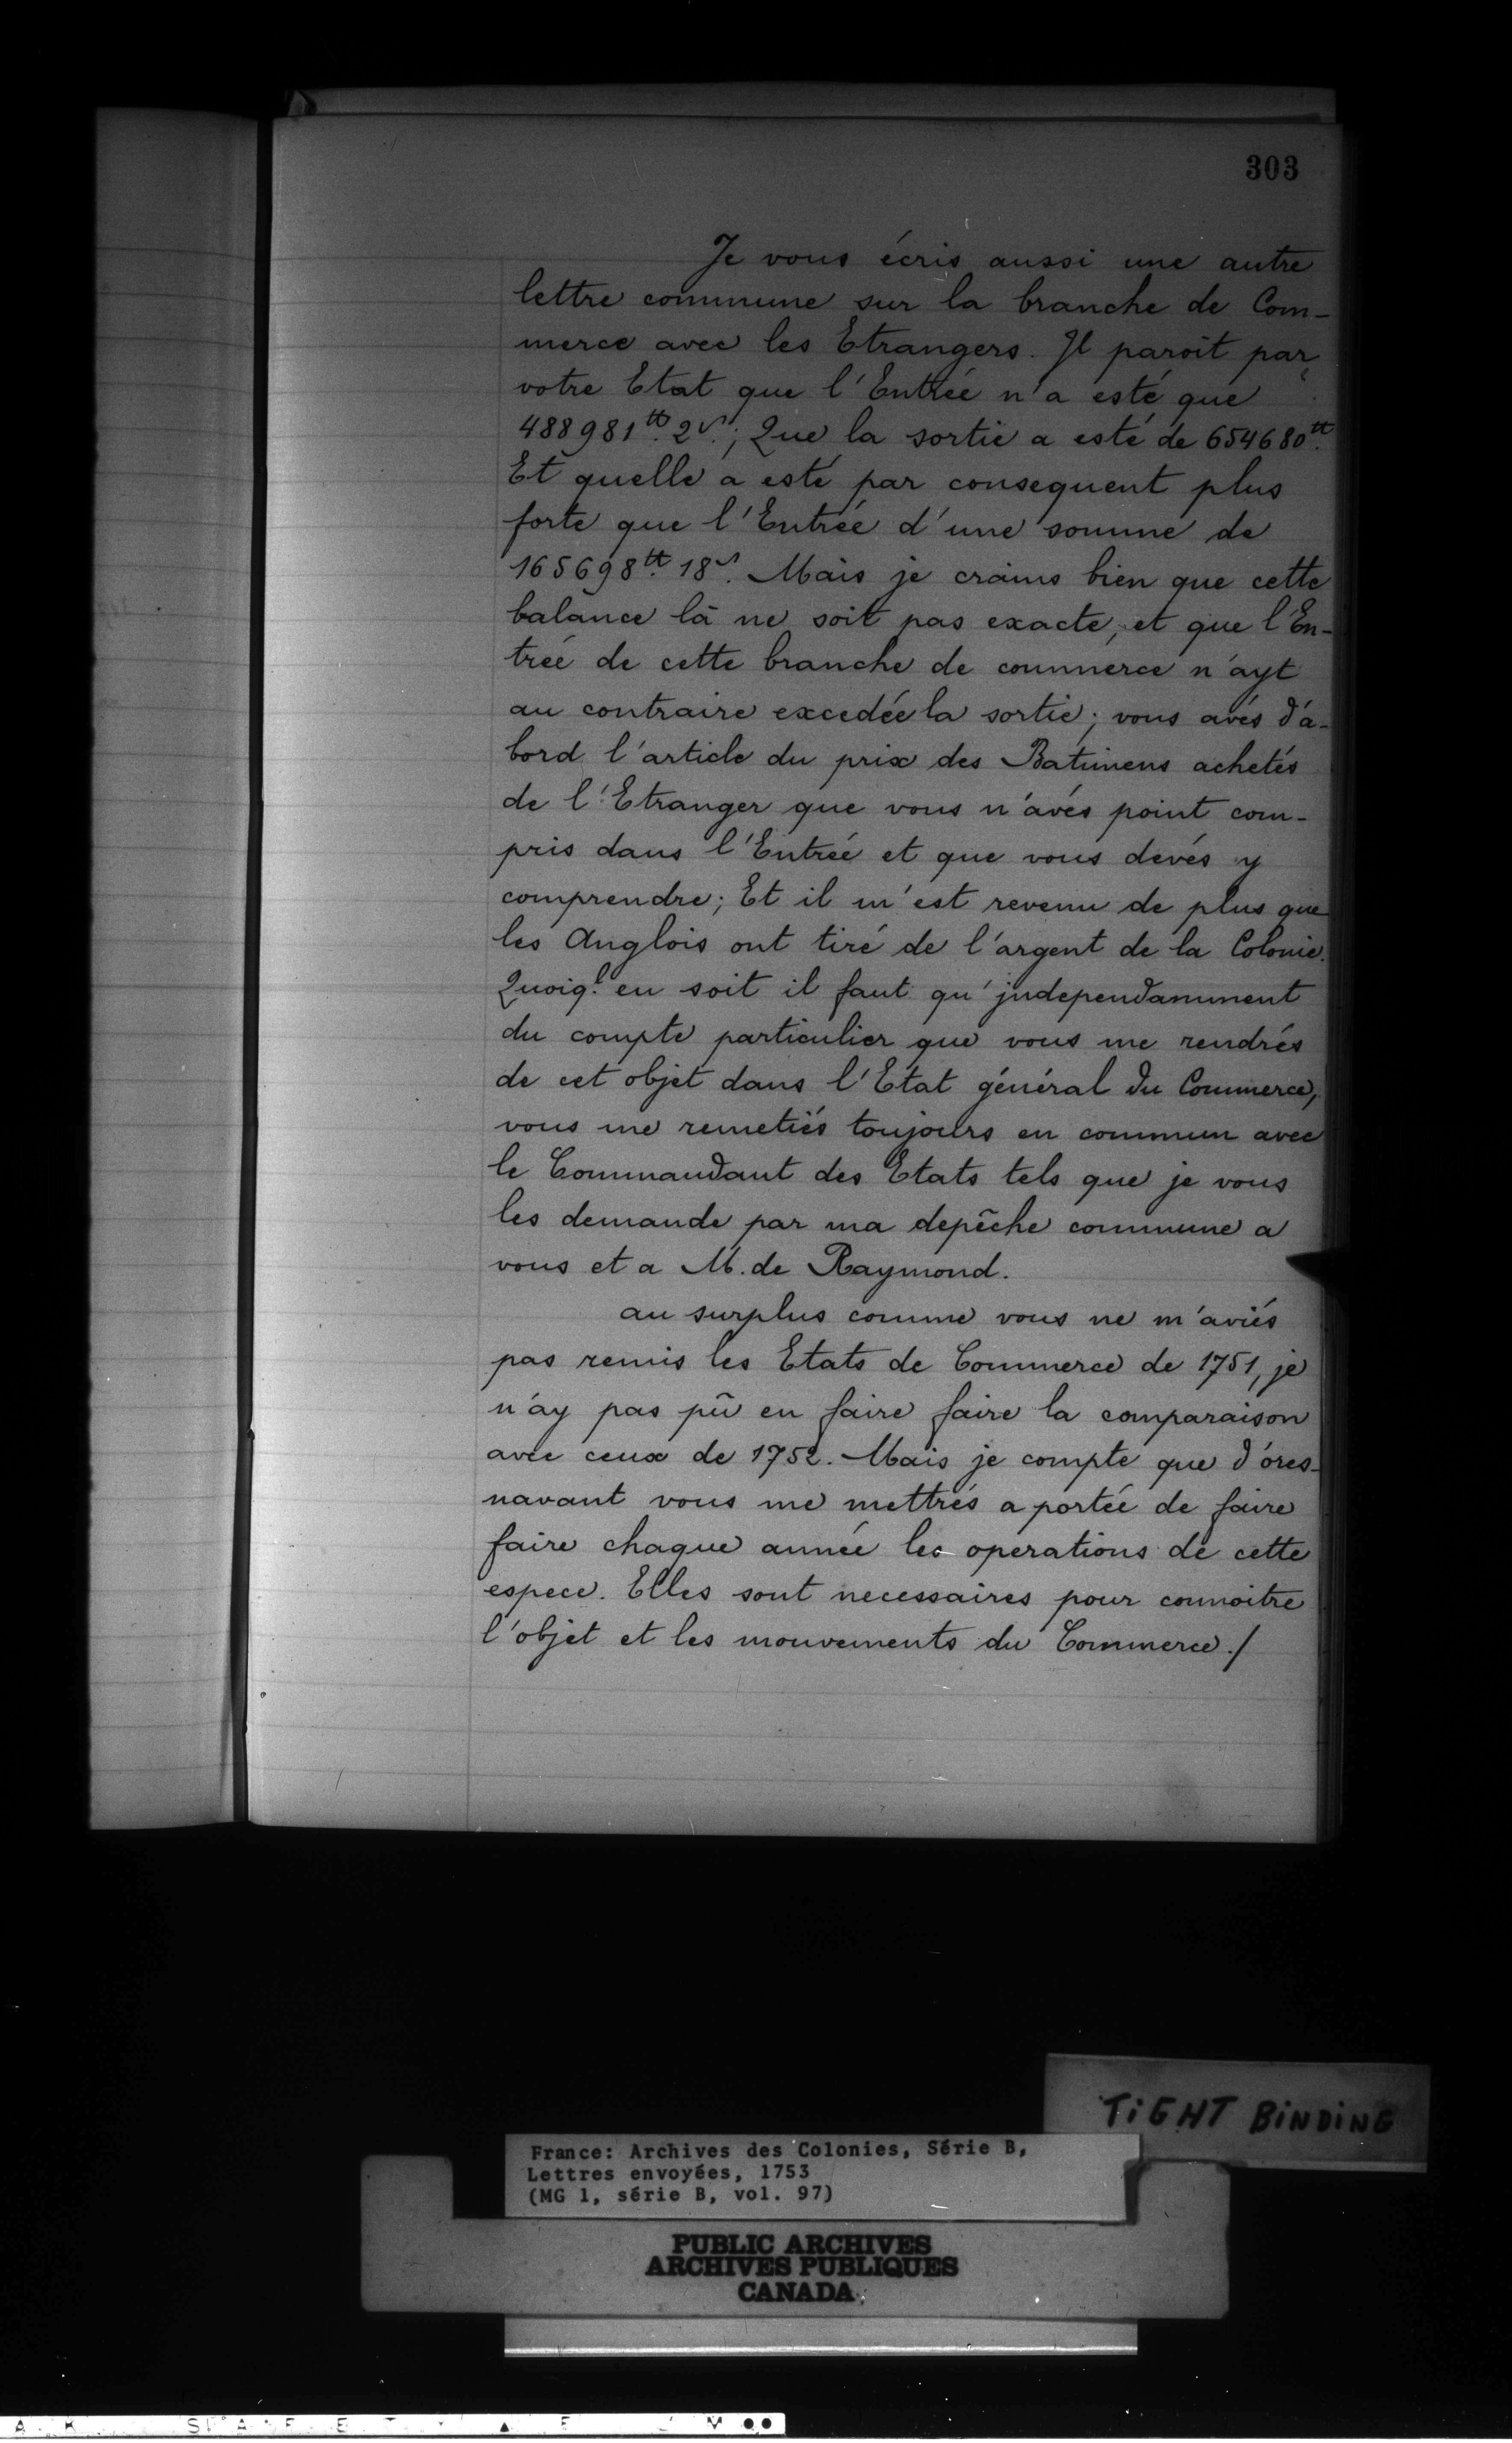 303
Je vous écris aussi une autre
lettre commune sur la branche de Com-
merce avec les Etrangers. Il paroit par
votre Etat que l'Entrée n'a esté que
488981tt. 2s.; Que la sortie a esté de 654680tt.
Et quelle a esté par consequent plus
forte que l'Entrée d'une somme de
165698tt. 18s. Mais je crains bien que cette
balance là ne soit pas exacte, et que l'En-
trée de cette branche de commerce n'ayt
au contraire excedée la sortie; vous avés d'a-
bord l'article du prix des Batimens achetés
de l'Etranger que vous n'avés point com-
pris dans l'Entrée et que vous devés y
comprendre; Et il m'est revenu de plus que
les Anglois ont tiré de l'argent de la Colonie.
Quoiq. l en soit il faut qu'independamment
du compte particulier que vous me rendrés
de cet objet dans l'Etat général du Commerce,
vous me remetiés toujours en commun avec
le Commandant des Etats tels que je vous
les demande par ma depêche commune a
vous et a M. de Raymond.
au surplus comme vous ne m'aviés
pas remis les Etats de Commerce de 1751, je
n'ay pas pû en faire faire la comparaison
avec ceux de 1752. Mais je compte que d'ores-
navant vous me mettrés a portée de faire
faire chaque année les operations de cette
espece. Elles sont necessaires pour connoitre
l'objet et les mouvements du Commerce./
TIGHT BINDING
France: Archives des Colonies, Série B,
Lettres envoyées, 1753
(MG 1, série B, vol. 97)
PUBLIC ARCHIVES
ARCHIVES PUBLIQUES
CANADA